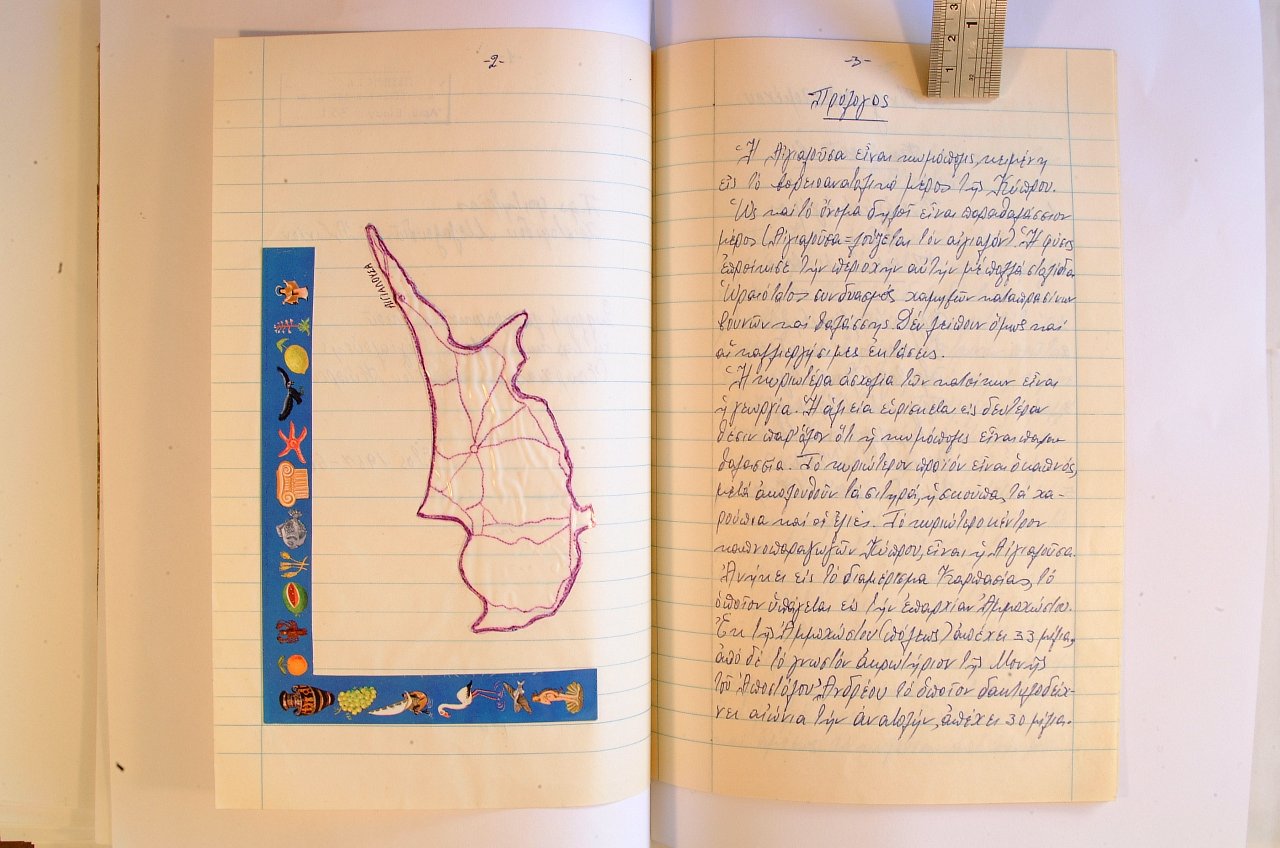 -2-
ΑΙΓΙΑΛΟΥΣΑ
-3-
Πρόλογος
Ἡ Αἰγιαλοῦσα εἶναι κωμόπολις, κειμένη
εἰς τό βορειοανατολικό μέρος τῆς Κύπρου.
Ὡς καί τό ὄνομα δηλοῖ εἶναι παραθαλάσσιον
μέρος (Αἰγιαλοῦσα = λούζεται τόν αἰγιαλόν). Ἡ φύσις
ἐπροίκισε τήν περιοχήν αὐτήν μέ πολλά στολίδια.
Ὡραιότατος συνδυασμός χαμηλῶν καταπρασίνων
βουνῶν καί θαλάσσης. Δέν λείπουν ὅμως καί
αἱ καλλιεργήσιμες ἐκτάσεις.
Ἡ κυριωτέρα ἀσχολία τῶν κατοίκων εἶναι
ἡ γεωργία. Ἡ ἁλιεία εὑρίσκεται εἰς δευτέραν
θέσιν παρ' ὅλον ὅτι ἡ κωμόπολις εἶναι παρα-
θαλασσία. Τό κυριώτερον προϊόν εἶναι ὁ καπνός,
μετά ἀκολουθοῦν τά σιτηρά, ἡ σκούπα, τά χα-
ρούπια καί οἱ ἐλιές. Τό κυριώτερο κέντρον
καπνοπαραγωγῶν Κύπρου, εἶναι ἡ Αἰγιαλοῦσα.
Ἀνήκει εἰς τό διαμέρισμα Καρπασίας, τό
ὁποῖον ὑπάγεται εἰς τήν ἐπαρχίαν Ἀμμοχώστου.
Ἐκ τῆς Ἀμμοχώστου (πόλεως) ἀπέχει 33 μίλια,
ἀπό δέ τό γνωστόν ἀκρωτήριον τῆς Μονῆς
τοῦ Ἀποστόλου Ἀνδρέου τό ὁποῖον δακτυλοδείχ-
νει αἰώνια τήν ἀνατολήν, ἀπέχει 30 μίλια.